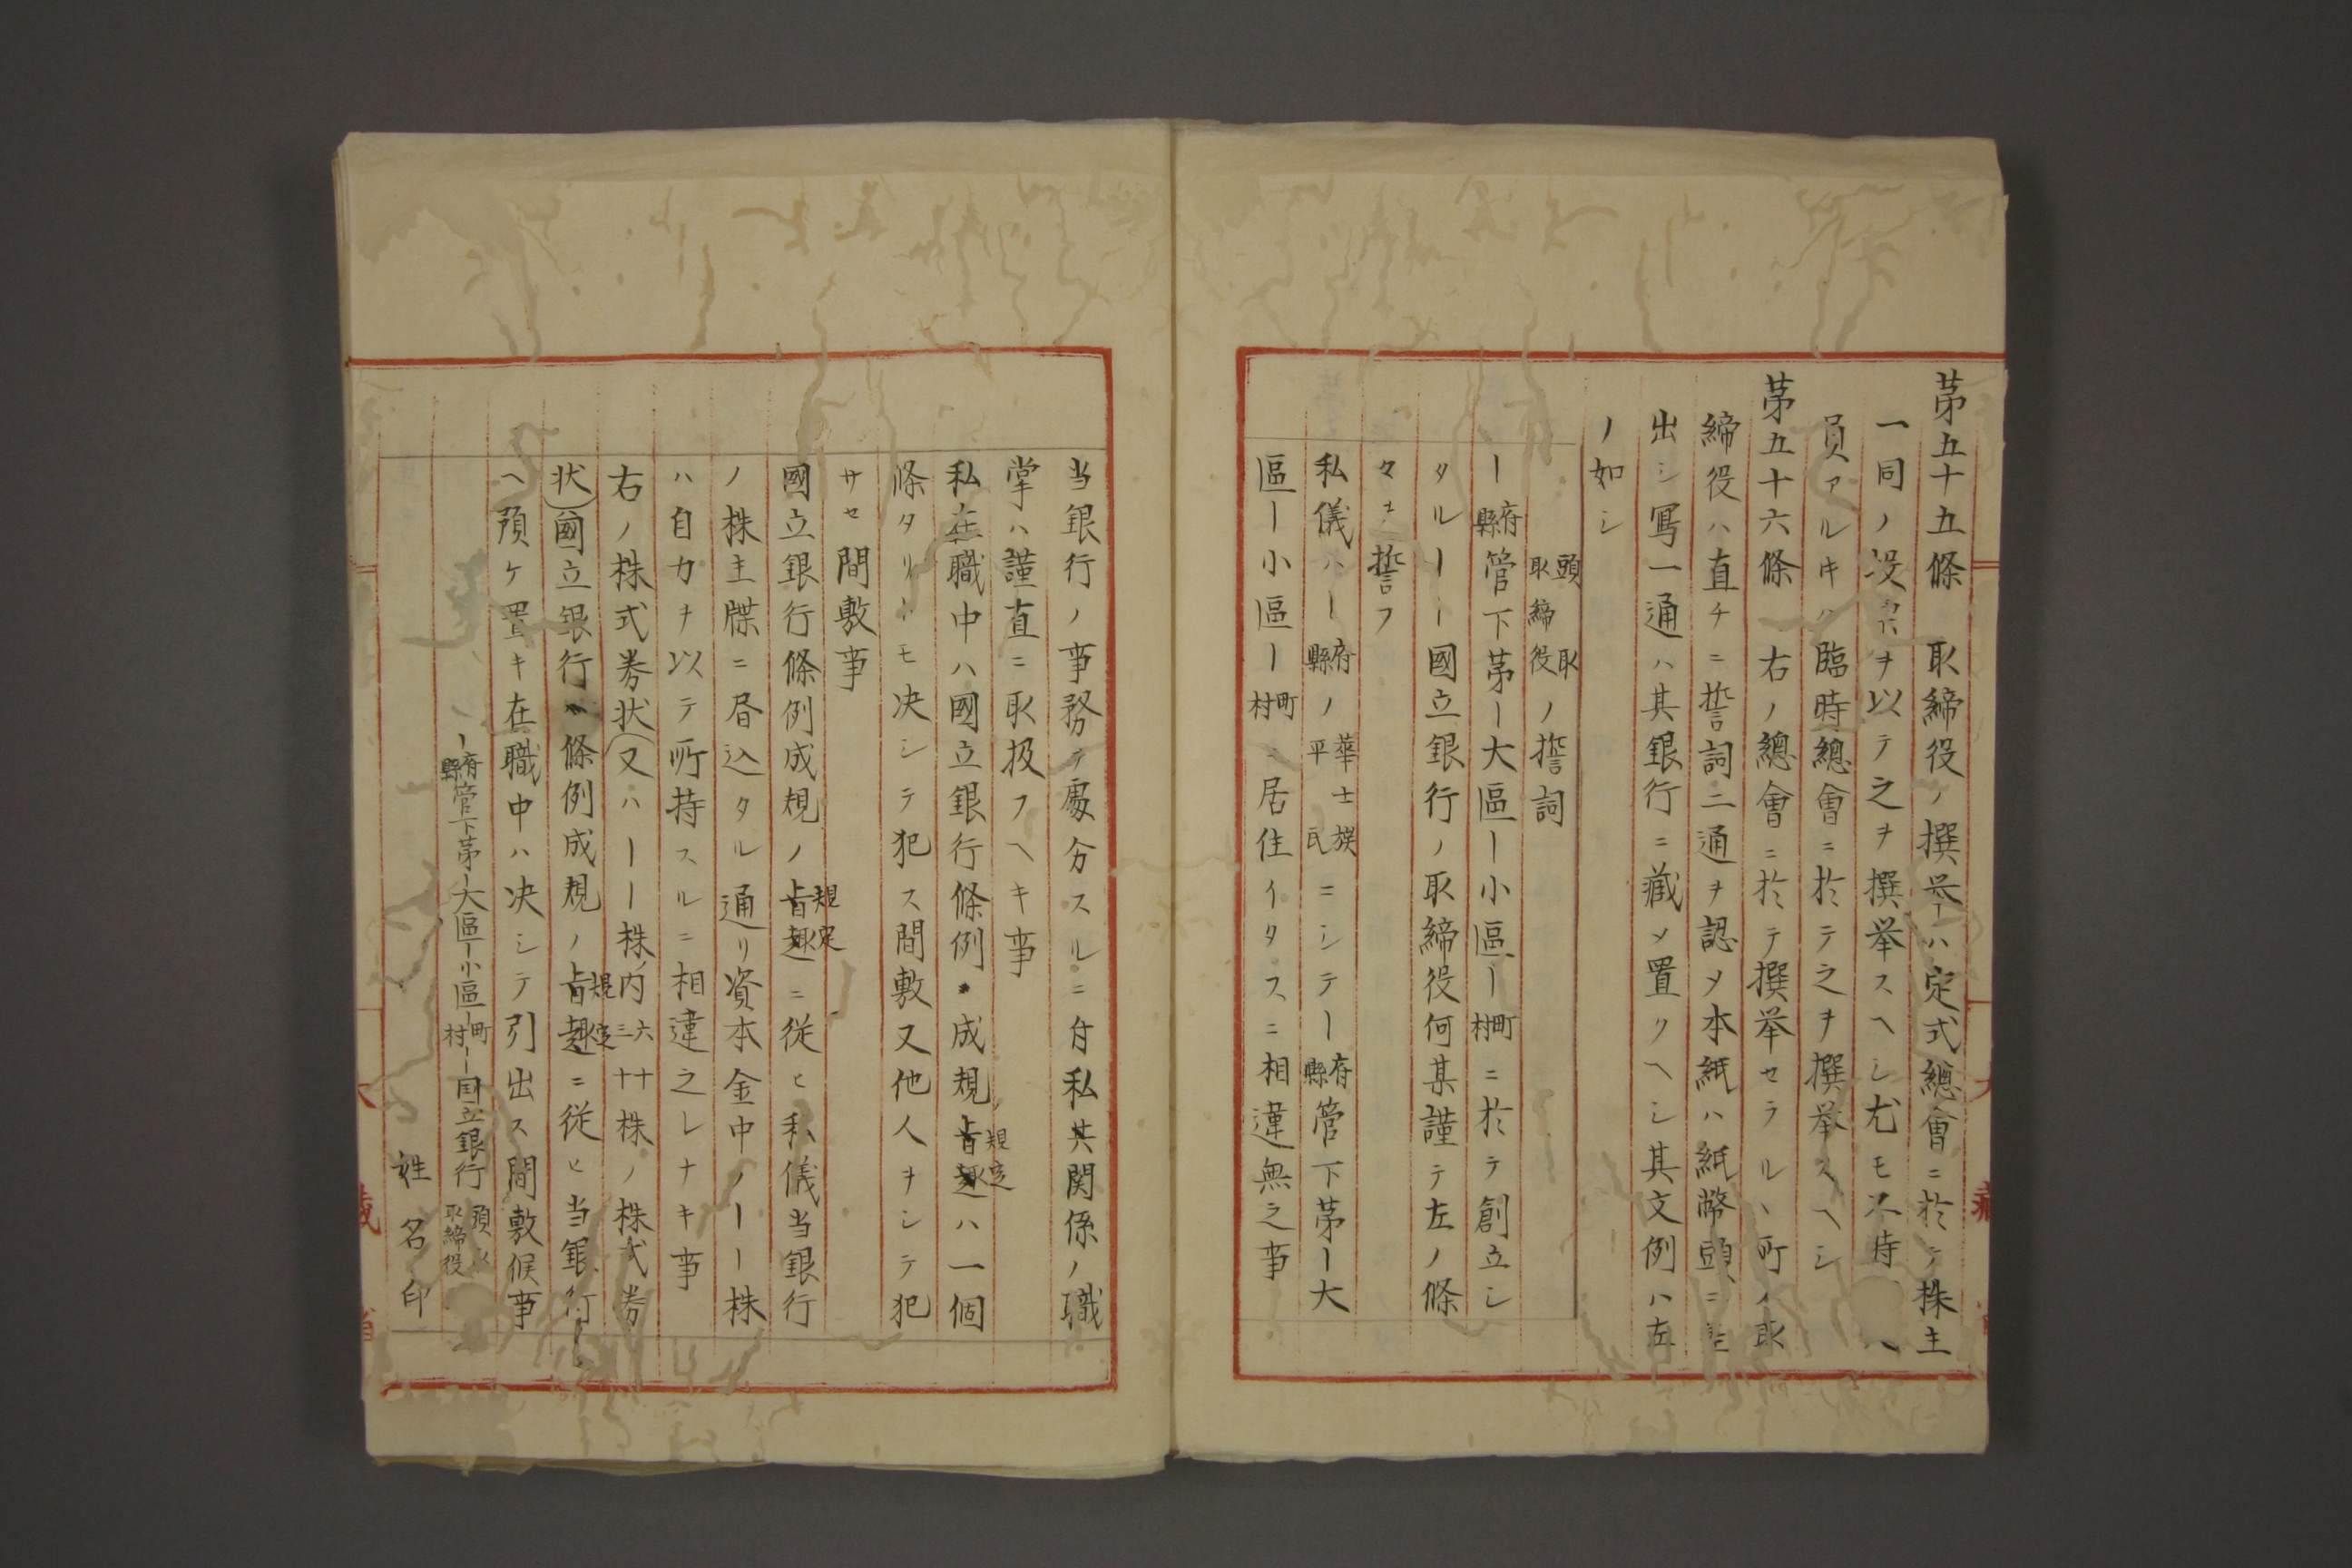 苐五十五條 取締役ノ撰挙ハ定式總會ニ於テ株主
一同ノ投票ヲ以テ之ヲ撰挙スヘシ尤モ不時
員アルキハ臨時總會ニ於テ之ヲ撰挙スヘシ
苐五十六條 右ノ總會ニ於テ撰挙セラルヽ所ノ取
締役ハ直チニ誓詞二通ヲ認メ本紙ハ紙幣頭ニ
出シ寫一通ハ其銀行ニ藏メ置クヘシ其文例ハ左
ノ如シ
頭取取締役ノ誓詞
ー府縣管下苐ー大區ー小區ー町村ニ於テ創立シ
タルーー國立銀行ノ取締役何某謹テ左ノ條
々ヲ誓フ
私儀ハー府縣ノ華士族平民ニシテー府縣管下苐ー大
區ー小區ー町村ニ居住イタスニ相違無之事
当銀行ノ事務ヲ處分スルニ付私共関係ノ職
掌ハ謹直ニ取扱フヘキ事
私在職中ハ國立銀行條例・成規ノ旨趣規定ハ一個
條タリトモ决シテ犯ス間敷又他人ヲシテ犯
サセ間敷事
國立銀行條例成規ノ旨趣規定ニ従ヒ私儀当銀行
ノ株主牒ニ昏込タル通リ資本金中ノーー株
ハ自カヲ以テ所持スルニ相違之レナキ事
右ノ株式券状(又ハーー株内六十三十株ノ株式券
状)國立銀行條例成規ノ旨趣規定ニ従ヒ当銀行
ヘ預ケ置キ在職中ハ决シテ引出ス間敷候事
ー府縣管下苐ー大區ー小區ー町村ー国立銀行 頭取取締役
姓名印
大藏省